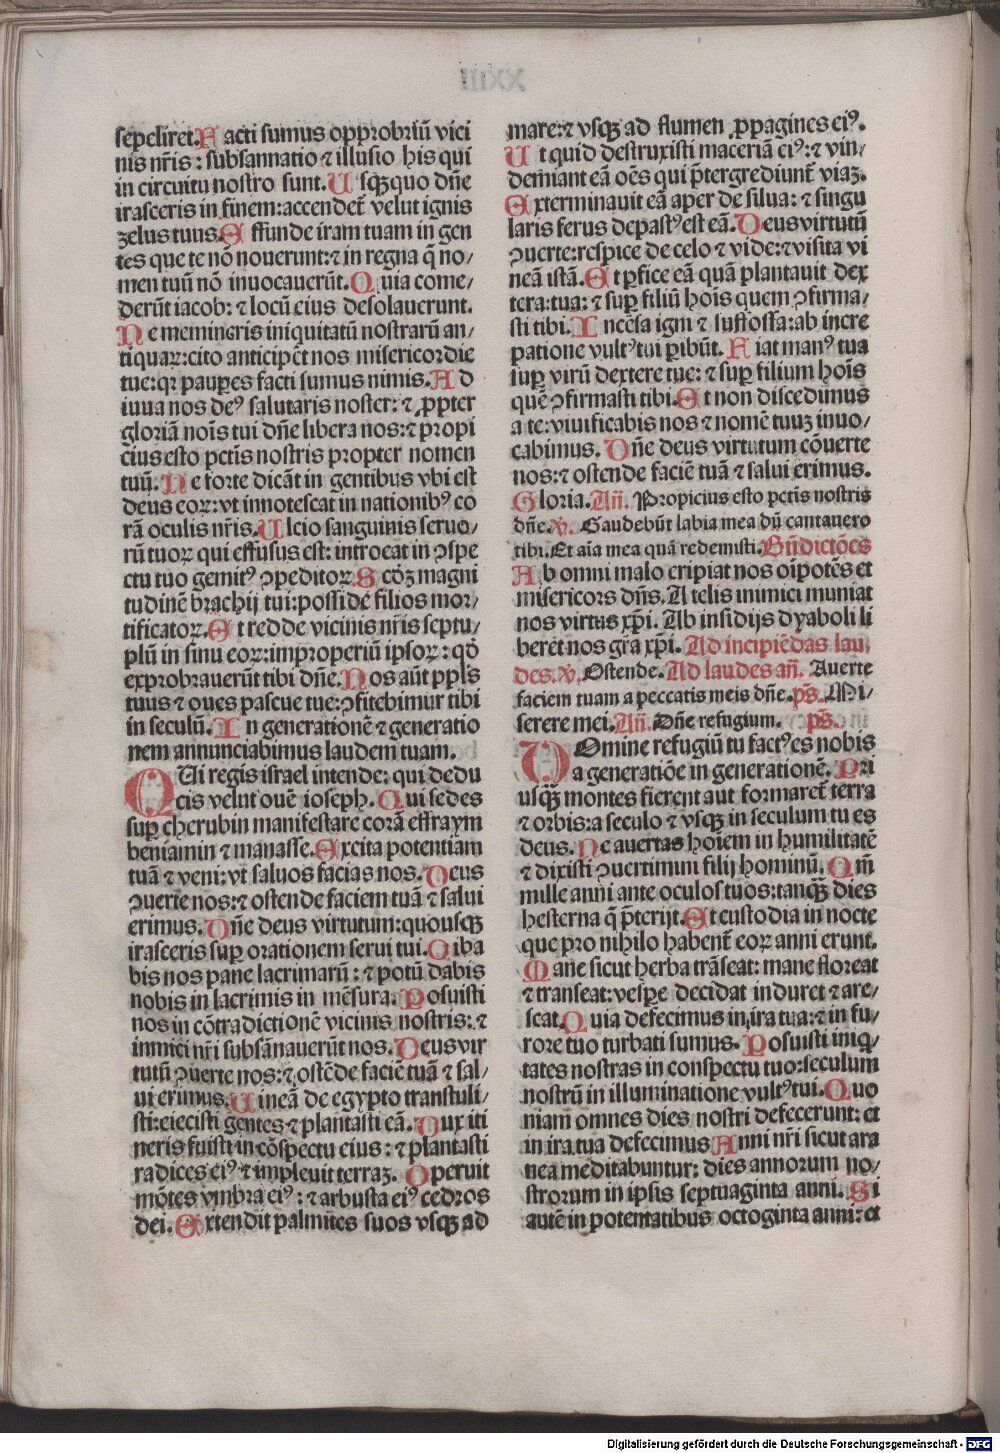 sepeliret. Facti sumus opprobriū vici
nis nr̄is: subsannatio ⁊ illusio his qui
in circuitu nostro sunt. Usqꝫquo dn̄e
irasceris in finem: accendet̄ velut ignis
zelus tuus. Effunde iram tuam in gen
tes que te nō nouerunt: ⁊ in regna q̄ no/
men tuū nō inuocauerūt. Quia come/
derūt iacob: ⁊ locū eius desolauerunt.
Ne memineris iniquitatū nostrarū an/
tiquaꝝ: cito anticipēt nos misericordie
tue: qꝛ pauꝑes facti sumus nimis. Ad
iuua nos deꝰ salutaris noster: ⁊ ꝓpter
gloriā noīs tui dn̄e libera nos: ⁊ propi
cius esto pctīs nostris propter nomen
tuū. Ne forte dicāt in gentibus vbi est
deus eoꝝ: vt innotescat in nationibꝰ co
rā oculis nr̄is. Ulcio sanguinis seruo/
rū tuoꝝ qui effusus est: introeat in ꝯspe
ctu tuo gemitꝰ ꝯpeditoꝝ. Scd̄ꝫ magni
tudinē brachij tui: posside filios mor/
tificatoꝝ. Et redde vicinis nr̄is septu/
plū in sinu eoꝝ: improperiū ipsoꝝ: qd̄
exprobrauerūt tibi dn̄e. Nos aūt ppl̄s
tuus ⁊ oues pascue tue: ꝯfitebimur tibi
in seculū. In generationē ⁊ generatio
nem annunciabimus laudem tuam.
QUi regis israel intende: qui dedu
cis velut ouē ioseph. Qui sedes
suꝑ cherubin manifestare corā effraym
beniamin ⁊ manasse. Excita potentiam
tuā ⁊ veni: vt saluos facias nos. Deus
ꝯuerte nos: ⁊ ostende faciem tuā ⁊ salui
erimus. Dn̄e deus virtutum: quousqꝫ
irasceris suꝑ orationem serui tui. Ciba
bis nos pane lacrimarū: ⁊ potū dabis
nobis in lacrimis in mēsura. Posuisti
nos in cōtradictionē vicinis nostris: ⁊
inmici nr̄i subsānauerūt nos. Deus vir
tutū ꝯuerte nos: ⁊ ostēde faciē tuā ⁊ sal/
ui erimus. Uineā de egypto transtuli/
sti: eiecisti gentes ⁊ plantasti eā. Dux iti
neris fuisti in cōspectu eius: ⁊ plantasti
radices eiꝰ ⁊ impleuit terraꝫ. Operuit
mōtes vmbra eiꝰ: ⁊ arbusta eiꝰ cedros
dei. Extendit palmites suos vsqꝫ ad
mare: ⁊ vsqꝫ ad flumen ꝓpagines eiꝰ.
Ut quid destruxisti maceriā eiꝰ: ⁊ vin/
demiant eā oēs qui p̄tergrediunt̄ viaꝫ.
Exterminauit eā aper de silua: ⁊ singu
laris ferus depastꝰ est eā. Deus virtutū
ꝯuerte: respice de celo ⁊ vide: ⁊ visita vi
neā istā. Et ꝑfice eā quā plantauit dex
tera: tua: ⁊ suꝑ filiū hoīs quem ꝯfirma/
sti tibi. Incēsa igni ⁊ suffossa: ab incre
patione vultꝰ tui ꝑibūt. Fiat manꝰ tua
suꝑ virū dextere tue: ⁊ suꝑ filium hoīs
quē ꝯfirmasti tibi. Et non discedimus
a te: viuificabis nos ⁊ nomē tuuꝫ inuo/
cabimus. Dn̄e deus virtutum cōuerte
nos: ⁊ ostende faciē tuā ⁊ salui erimus.
Gloria. Añ. Propicius esto pctīs nostris
dn̄e. ℣. Gaudebūt labia mea dū cantauero
tibi. Et aīa mea quā redemisti. Bn̄dictōes
Ab omni malo eripiat nos oīpotēs et
misericors dn̄s. A telis inimici muniat
nos virtus xp̄i. Ab insidijs dyaboli li
beret nos gr̄a xp̄i. Ad incipiēdas lau
des. ℣. Ostende. Ad laudes añ. Auerte
faciem tuam a peccatis meis dn̄e. ps̄. Mi/
serere mei. Añ. Dn̄e refugium. ps̄.
DOmine refugiū tu factꝰ es nobis
a generatiōe in generationē. Pri
usqꝫ montes fierent aut formaret̄ terra
⁊ orbis: a seculo ⁊ vsqꝫ in seculum tu es
deus. Ne auertas hoīem in humilitatē
⁊ dixisti ꝯuertimini filij hominū. Qm̄
mille anni ante oculos tuos: tanqꝫ dies
hesterna q̄ p̄terijt. Et custodia in nocte
que pro nihilo habent̄ eoꝝ anni erunt.
Mane sicut herba trāseat: mane floreat
⁊ transeat: vesꝑe decidat induret ⁊ are/
scat. Quia defecimus in ira tua: ⁊ in fu/
rore tuo turbati sumus. Posuisti iniq̄/
tates nostras in conspectu tuo: seculum
nostrū in illuminatione vultꝰ tui. Quo
niam omnes dies nostri defecerunt: et
in ira tua defecimus Anni nr̄i sicut ara
nea meditabuntur: dies annorum no/
strorum in ipsis septuaginta anni. Si
autē in potentatibus octoginta anni: et
Digitalisierung gefördert durch die Deutsche Forschungsgemeinschaft - DFG